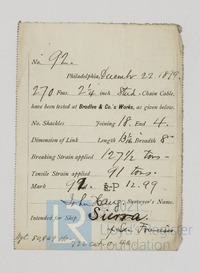 No. 92
Philadelphia, December 22 1899
270 Fms. 2¼ inch Stud-Chain Cable,
have been tested at Bradlee & Co.'s Works, as given below.
No. Shackles Joining 18. End 4.
Dimension of Link Length 13½ Breadth 8"
Breaking Strain applied 127½ tons-
Tensile Strain applied 91 tons-
Mark 92 12.99
John Haug, Surveyor's Name.
Intended for Ship Sierra